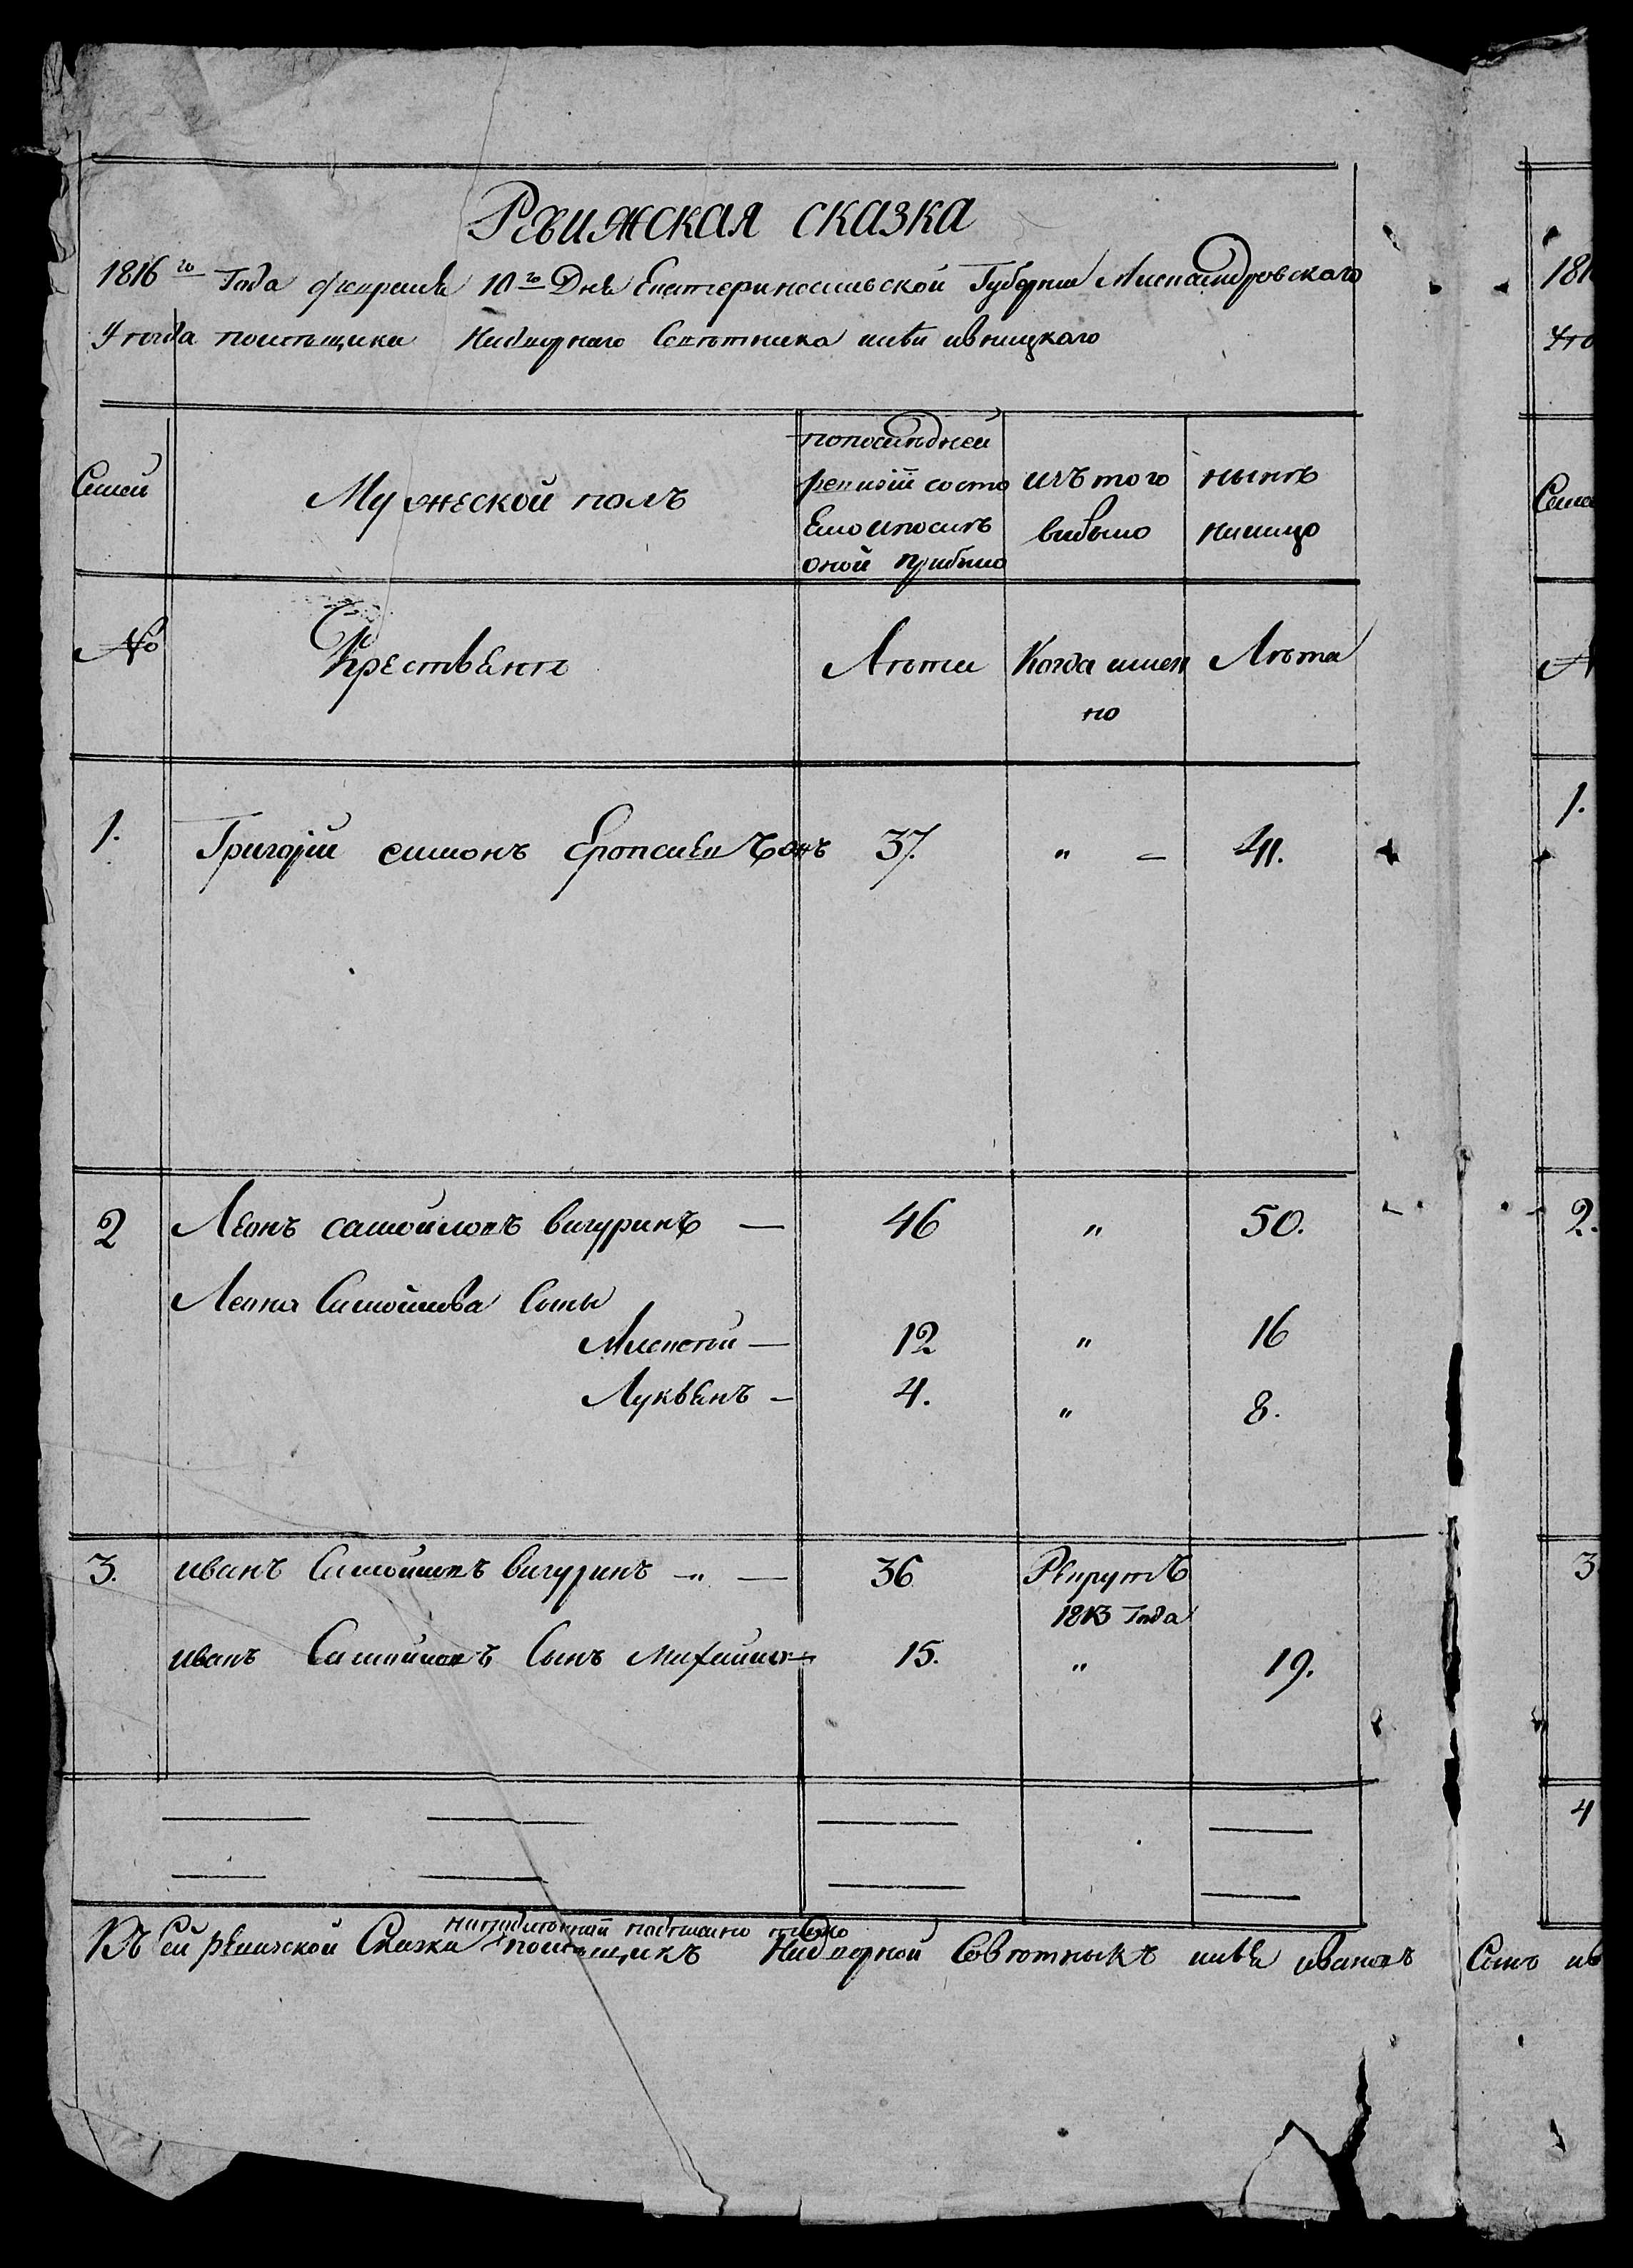 Ревижская сказка
1816го Года февраля 10го Дня Екатеринославской Губернии Александровского
уезда помещика Надворнаго Советника
Семей
Мужеской полъ
попоследней
ревизіи состо
яло ипосле
оной прибыло
изъ того
выбыло
ныне
налицо
№
Крествяне
Лета
Когда имен
но
Лета
1.
Григорій симонъ
37.
"
41.
2
Леонъ самойловъ вигуринъ —
46
"
50.
Леона Самойлова Сыны
Алексей —
12
"
16
Луквянъ —
4.
"
8.
3.
иванъ Самойловъ вигуринъ — " —
36
Рекрутъ
1813 Года
иванъ Самойловъ Сынъ Михайло —
15.
"
19.
Къ Сей ревижской Сказки помещикъ Надворной Советникъ ивановъ Сынъ ив
181
Семе
1.
2.
3
4